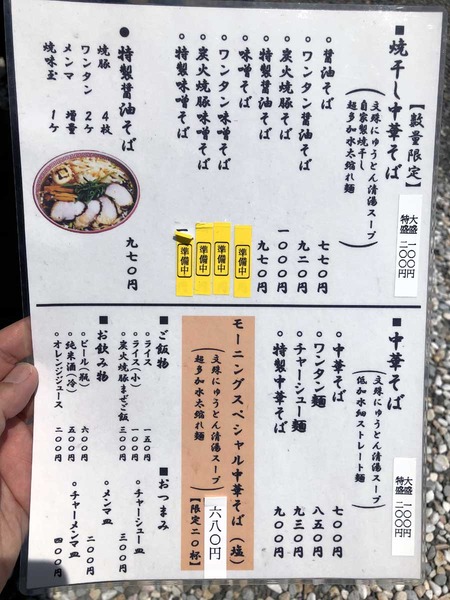 ■焼干し中華そば【数量限定】
(文殊にゅうとん清湯スープ
自家製焼干し
超多加水太縮れ麺)
大盛 一〇〇円
特盛 二〇〇円
◦醤油そば 七七〇円
◦ワンタン醤油そば 九二〇円
◦炭火焼豚醤油そば 一〇〇〇円
◦特製醤油そば 九七〇円
◦味噌そば 準備中
◦ワンタン味噌そば 準備中
◦炭火焼豚味噌そば 準備中
◦特製味噌そば 準備中
●特製醤油そば 九七〇円
焼豚 4枚
ワンタン 2ケ
メンマ 増量
焼味玉 1ケ
■中華そば
(文殊にゅうとん清湯スープ
低加水細ストレート麺)
大盛 一〇〇円
特盛 二〇〇円
◦中華そば 七〇〇円
◦ワンタン麺 八五〇円
◦チャーシュー麺 九三〇円
◦特製中華そば 九〇〇円
モーニングスペシャル中華そば(塩)
(文殊にゅうとん清湯スープ
超多加水太縮れ麺)
六八〇円
【限定20杯】
■ご飯物
◦ライス 一五〇
◦ライス(小) 一〇〇
◦炭火焼豚まぜご飯 三〇〇
■おつまみ
◦チャーシュー皿 三〇〇円
◦メンマ皿 二〇〇円
◦チャーメンマ皿 四〇〇円
■お飲み物
◦ビール(瓶) 六〇〇
◦純米酒(冷) 五〇〇
◦オレンジジュース 二〇〇円